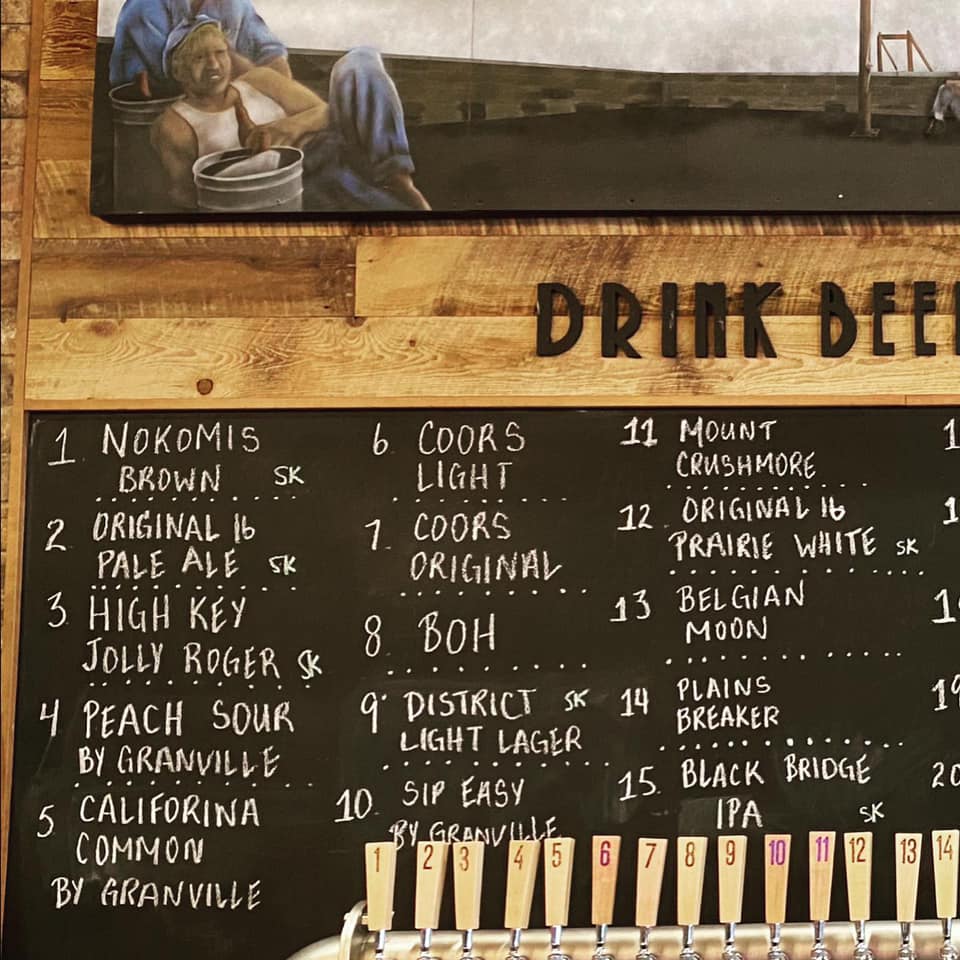 DRINK BEE
1 NOKOMIS
BROWN SK
2 ORIGINAL 16
PALE ALE SK
3 HIGH KEY
JOLLY ROGER SK
4 PEACH SOUR
BY GRANVILLE
5 CALIFORINA
COMMON
BY GRANVILLE
6 COORS
LIGHT
7. COORS
ORIGINAL
8 BOH
9 DISTRICT SK
LIGHT LAGER
10. SIP EASY
BY GRANVILLE
11 MOUNT
CRUSHMORE
12. ORIGINAL 16
PRAIRIE WHITE SK
13 BELGIAN
MOON
14 PLAINS
BREAKER
15. BLACK BRIDGE
IPA SK
19
20
1 2 3 4 5 6 7 8 9 10 11 12 13 14